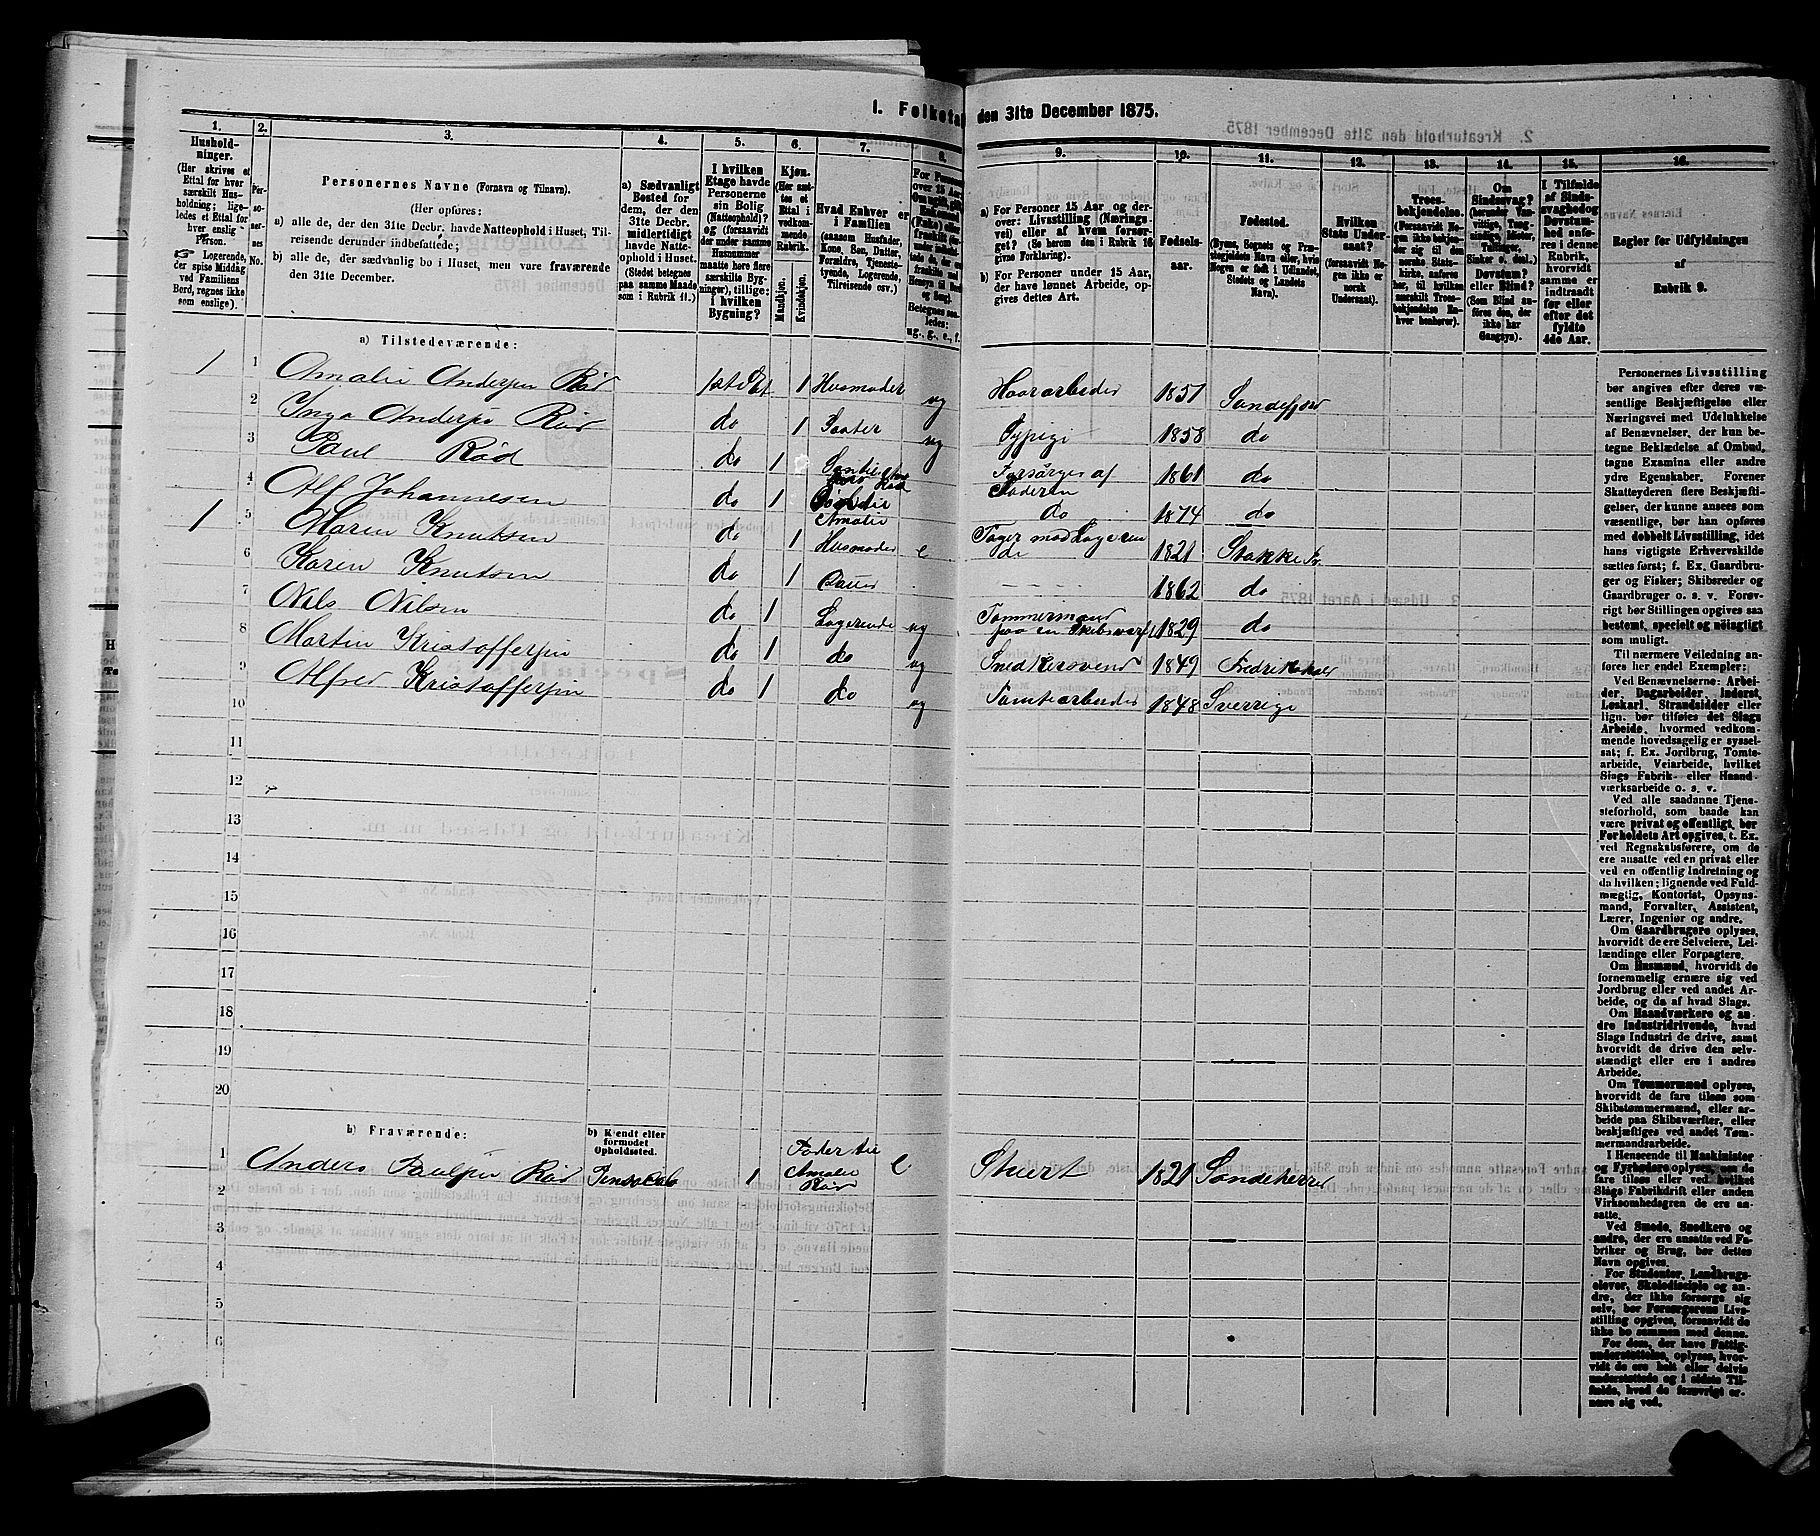 1. Folketal den 31te December 1875.
1.
Hushold-
ninger.
(Her skrives et
Ettal for hver
særskilt Hus-
holdning; lige-
ledes et Ettal for
hver enslig
Person.
Logerende,
der spise Middag
ved Familiens
Bord, regnes ikke
som enslige).
2.
Per-
so-
ner-
nes
No.
3.
Personernes Navne (Fornavn og Tilnavn).
(Her opføres:
a) alle de, der den 31te Decbr. havde Natteophold i Huset, Til-
reisende derunder indbefattede;
b) alle de, der sædvanlig bo i Huset, men vare fraværende
den 31te December.
4.
a) Sædvanligt
Bosted for
dem, der den
31te Decbr.
midlertidigt
havde Natte-
ophold i Huset.
(Stedet betegnes
paa samme Maade
som i Rubrik 11.)
5.
I hvilken
Etage havde
Personerne
sin Bolig
(Natteophold)?
og (forsaavidt
der under samme
Husnummer
maatte høre flere
særskilte Byg-
ninger), tillige:
I hvilken
Bygning?
6.
Kjøn.
(Her sæt-
tes et
Ettal i
vedkom-
mende
Rubrik.
Mandkjøn.
Kvindekjøn.
7.
Hvad Enhver er
i Familien
(saasom Husfader,
Kone, Søn, Datter,
Forældre, Tjeneste-
tyende, Logerende,
Tilreisende osv.)
8.
For Personer
over 15 Aar
Betegnes saa-
ledes:
ug., g., e., f.
9.
a) For Personer 15 Aar og der-
over: Livsstilling (Nærings-
vei) eller af hvem forsør-
get? (Se herom den i Rubrik 16
givne Forklaring).
b) For Personer under 15 Aar,
der have lønnet Arbeide, op-
gives dettes Art.
10.
Fødsels-
aar.
11.
Fødested.
(Byens, Sognets og Præ-
stegjeldets Navn eller, hvis
Nogen er født i Udlandet,
Stedets og Landets
Navn).
12.
Hvilken
Stats Under-
saat?
(forsaavidt No-
gen ikke er
norsk
Undersaat).
13.
Troes-
bekjendelse.
(Forsaavidt No-
gen ikke bekjen-
der sig til den
norske Stats-
kirke, anføres
her, til hvilken
særskilt Troes-
bekjendelse En-
hver henhører).
14.
Om
Sindssvag?
(herunder Van-
vittige, Tung-
sindige, Idioter,
Tullinger,
Sinker o. desl.)
Døvstum?
eller Blind?
(Som Blind an-
føres den, der
ikke har
Gangsyn).
15.
I Tilfælde
af Sinds-
svaghed og
Døvstum-
hed anfø-
res i denne
Rubrik,
hvorvidt
samme er
indtraadt
før eller
efter det
fyldte
4de Aar.
16.
Regler for Udfyldningen
af
Rubrik 9.
a) Tilstedeværende:
1 1 Amalie Andersen Rød 1ste Et 1 Husmoder ug Haararbeider 1851 Sandefjord
2 Inga Andersen Rød do 1 Søster ug Sypige 1858 do
3 Paul Rød do 1 Forsørges af Faderen 1861 do
4 Alf Johannesen do 1 Amalie do 1874 do
1 5 Maren Knutsen do 1 Husmoder e Tager mod Logerende 1821 Stokke Pr.
6 Karen Knutsen do 1 Datter 1862 do
7 Nils Nilsen do 1 Logerende ug Tømmermand paa en Skibsværft 1829 do
8 Martin Kristoffersen do 1 do ug Snedkersvend 1849 Fredrikshald
9 Alfred Kristoffersen do 1 do ug Tomtearbeider 1848 Sverrige
10
11
12
13
14
15
16
17
18
19
20
b) Fraværende:
b) Kjendt eller
formodet
Opholdssted.
1 Anders Paulsen Rød Pensacola 1 Fader til Amalie Rød e Stuert 1821 Sandeherred
2
3
4
5
6
Personernes Livsstilling
bør angives efter deres væ-
sentlige Beskjæftigelse eller
Næringsvei med Udelukkelse
af Benævnelser, der kun be-
tegne Beklædelse af Ombud,
tagne Examina eller andre
ydre Egenskaber. Forener
Skatteyderen flere Beskjæfti-
gelser, der kunne ansees som
væsentlige, bør han opføres
med dobbelt Livsstilling, idet
hans vigtigste Erhvervskilde
sættes først; f. Ex. Gaardbru-
ger og Fisker; Skibsreder og
Gaardbruger o. s. v. Forøv-
rigt bør Stillingen opgives saa
bestemt, specielt og nøiagtigt
som muligt.
Til nærmere Veiledning an-
føres her endel Exempler;
Ved Benævnelserne: Arbei-
der, Dagarbeider, Inderst,
Løskarl, Strandsidder eller
lign. bør tilføies det Slags
Arbeide, hvormed vedkom-
mende hovedsagelig er syssel-
sat; f. Ex. Jordbrug, Tomte-
arbeide, Veiarbeide, hvilket
Slags Fabrik- eller Haand-
værksarbeide o. s. v.
Ved alle saadanne Tjene-
steforhold, som baade kan
være privat og offentligt, bør
Forholdets Art opgives, t. Ex.
ved Regnskabsførere, om de
ere ansatte ved en privat eller
ved en offentlig Indretning og
da hvilken; lignende ved Fuld-
mægtig, Kontorist, Opsyns-
mand, Forvalter, Assistent,
Lærer, Ingeniør og andre.
Om Gaardbrugere oplyses,
hvorvidt de ere Selveiere, Lei-
lændinge eller Forpagtere.
Om Husmænd, hvorvidt de
fornemmelig ernære sig ved
Jordbrug eller ved andet Ar-
beide, og da af hvad Slags.
Om Haandværkere og an-
dre Industridrivende, hvad
Slags Industri de drive, samt
hvorvidt de drive den selv-
stændigt eller ere i andres
Arbeide.
Om Tømmermænd oplyses,
hvorvidt de fare tilsøs som
Skibstømmermænd, eller ar-
beide paa Skibsværfter, eller
beskjæftiges ved andet Tøm-
mermandsarbeide.
I Henseende til Maskinister
og Fyrbødere oplyses, om de
fare tilsøs eller ved hvilket
Slags Fabrikdrift eller anden
Virksomhedsgren de ere an-
satte.
Ved Smede, Snedkere og
andre, der ere ansatte ved Fa-
briker og Brug, bør dettes
Navn opgives.
For Studenter, Landbrugs-
elever, Skoledisciple og an-
dre, der ikke forsørge sig
selv, bør Forsørgerens Livs-
stilling opgives, forsaavidt de
ikke bo sammen med denne.
For dem, der have Fattig-
understøttelse, oplyses, hvor-
vidt de ere helt eller delvis
understøttede og i sidste Til-
fælde, hvad de forøvrigt er-
nære sig ved.